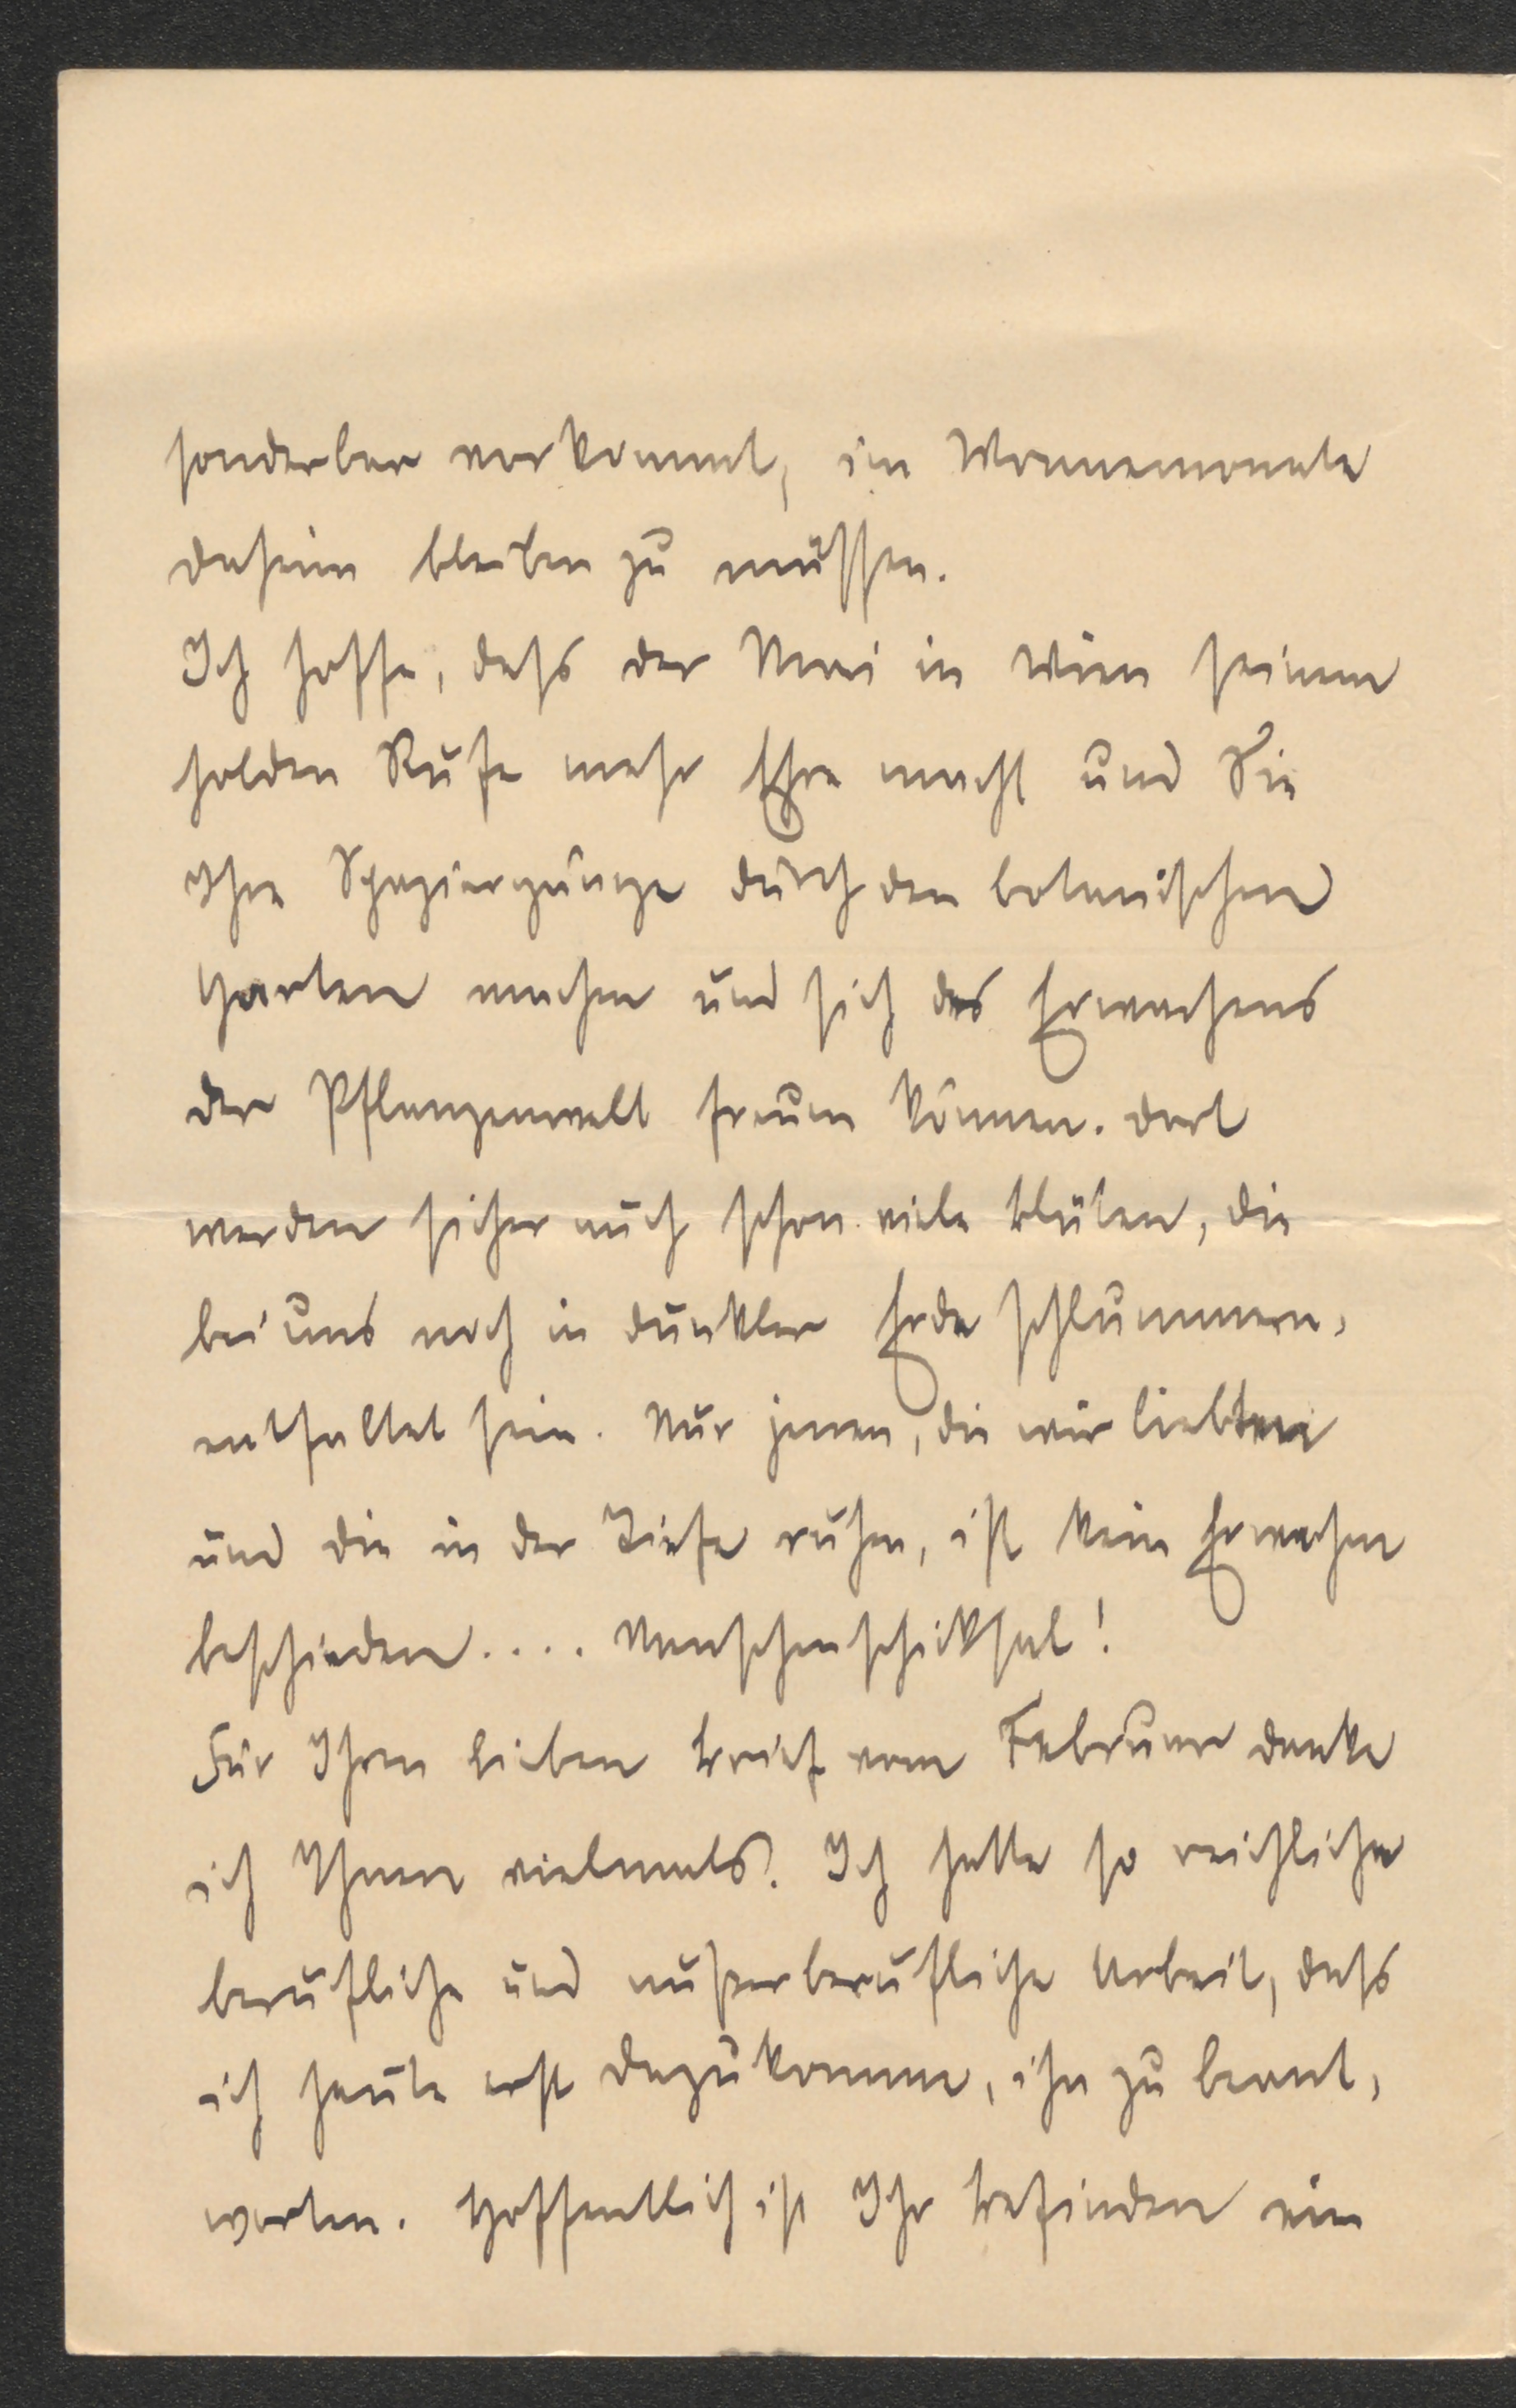 sonderbar vorkommt, im Wonnemonate
daheim bleiben zu müssen.
Ich hoffe, dass der Mai in Wien seinem
holden Rufe mehr Ehre macht und Sie
Ihre Spaziergänge durch den botanischen
Garten machen und sich des Erwachens
der Pflanzenwelt freuen können. Dort
werden sicher auch schon viele Blüten, die
bei uns noch in dunkler Erde schlummern,
entfaltet sein. Nur jenen, die wir liebten
und die in der Tiefe ruhen, ist kein Erwachen
beschieden.... Menschenschicksal!
Für Ihren lieben Brief vom Februar danke
ich Ihnen vielmals. Ich hatte so reichliche
berufliche und außerberufliche Arbeit, dass
ich heute erst dazukomme, ihn zu beant,
worten. Hoffentlich ist Ihr Befinden ein